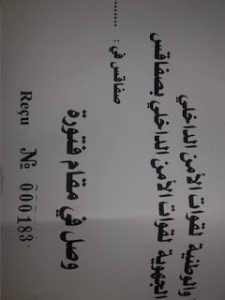 والوطنية لقوات الأمن الداخلي
الجهوية لقوات الأمن الداخلي بصفاقس
صفاقس في : ..............
وصل في مقام فتورة
Reçu № 000183